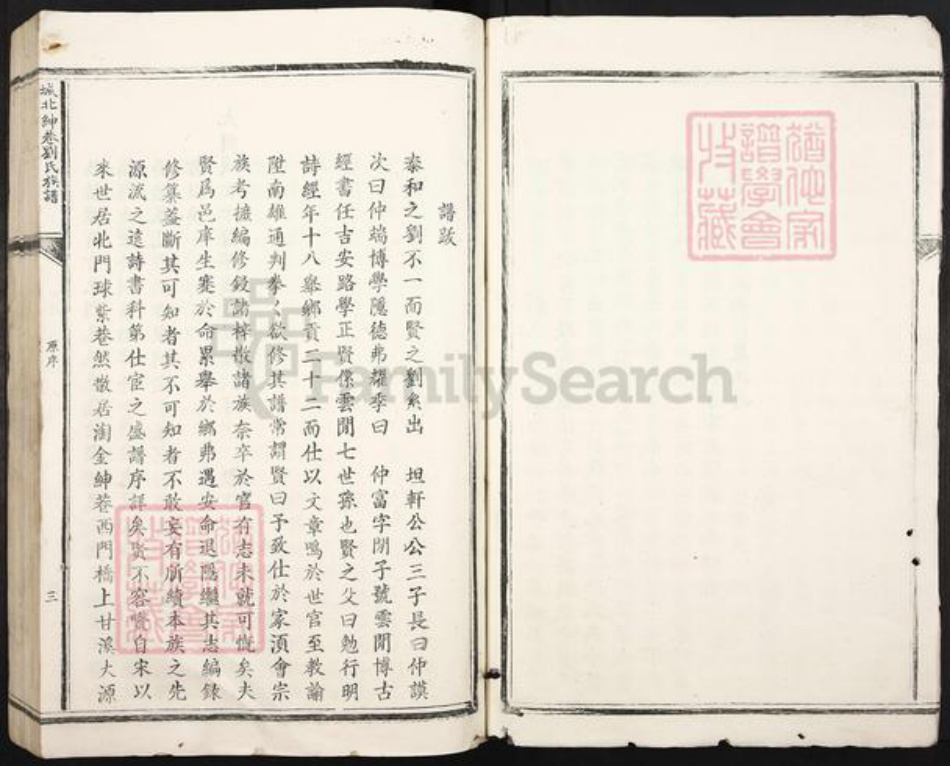 譜跋
泰和之劉不一而賢之劉系出 坦軒公公三子長曰仲謨
次曰仲端博學隱德弗耀季曰 仲富字閉子號雲閒博古
經書任吉安路學正賢係雲閒七世孫也賢之父曰勉行明
詩經年十八舉鄉貢二十二而仕以文章鳴於世官至教諭
陞南雄通判拳〱欲修其譜常謂賢曰予致仕於家湏會宗
族考據編修鋟諸梓散諸族奈卒於官有志未就可慨矣夫
賢爲邑庠生蹇於命累舉於鄉弗遇安命退隱繼其志編錄
修纂蓋斷其可知者其不可知者不敢妄有所續本族之先
源流之遠詩書科第仕宦之盛譜序詳矣賢不容贅自宋以
來世居北門球紫巷然散居淘金紳巷西門橋上甘溪大源
城北紳巷劉氏族譜
原序
三
譜學會
收藏
FamilySearch